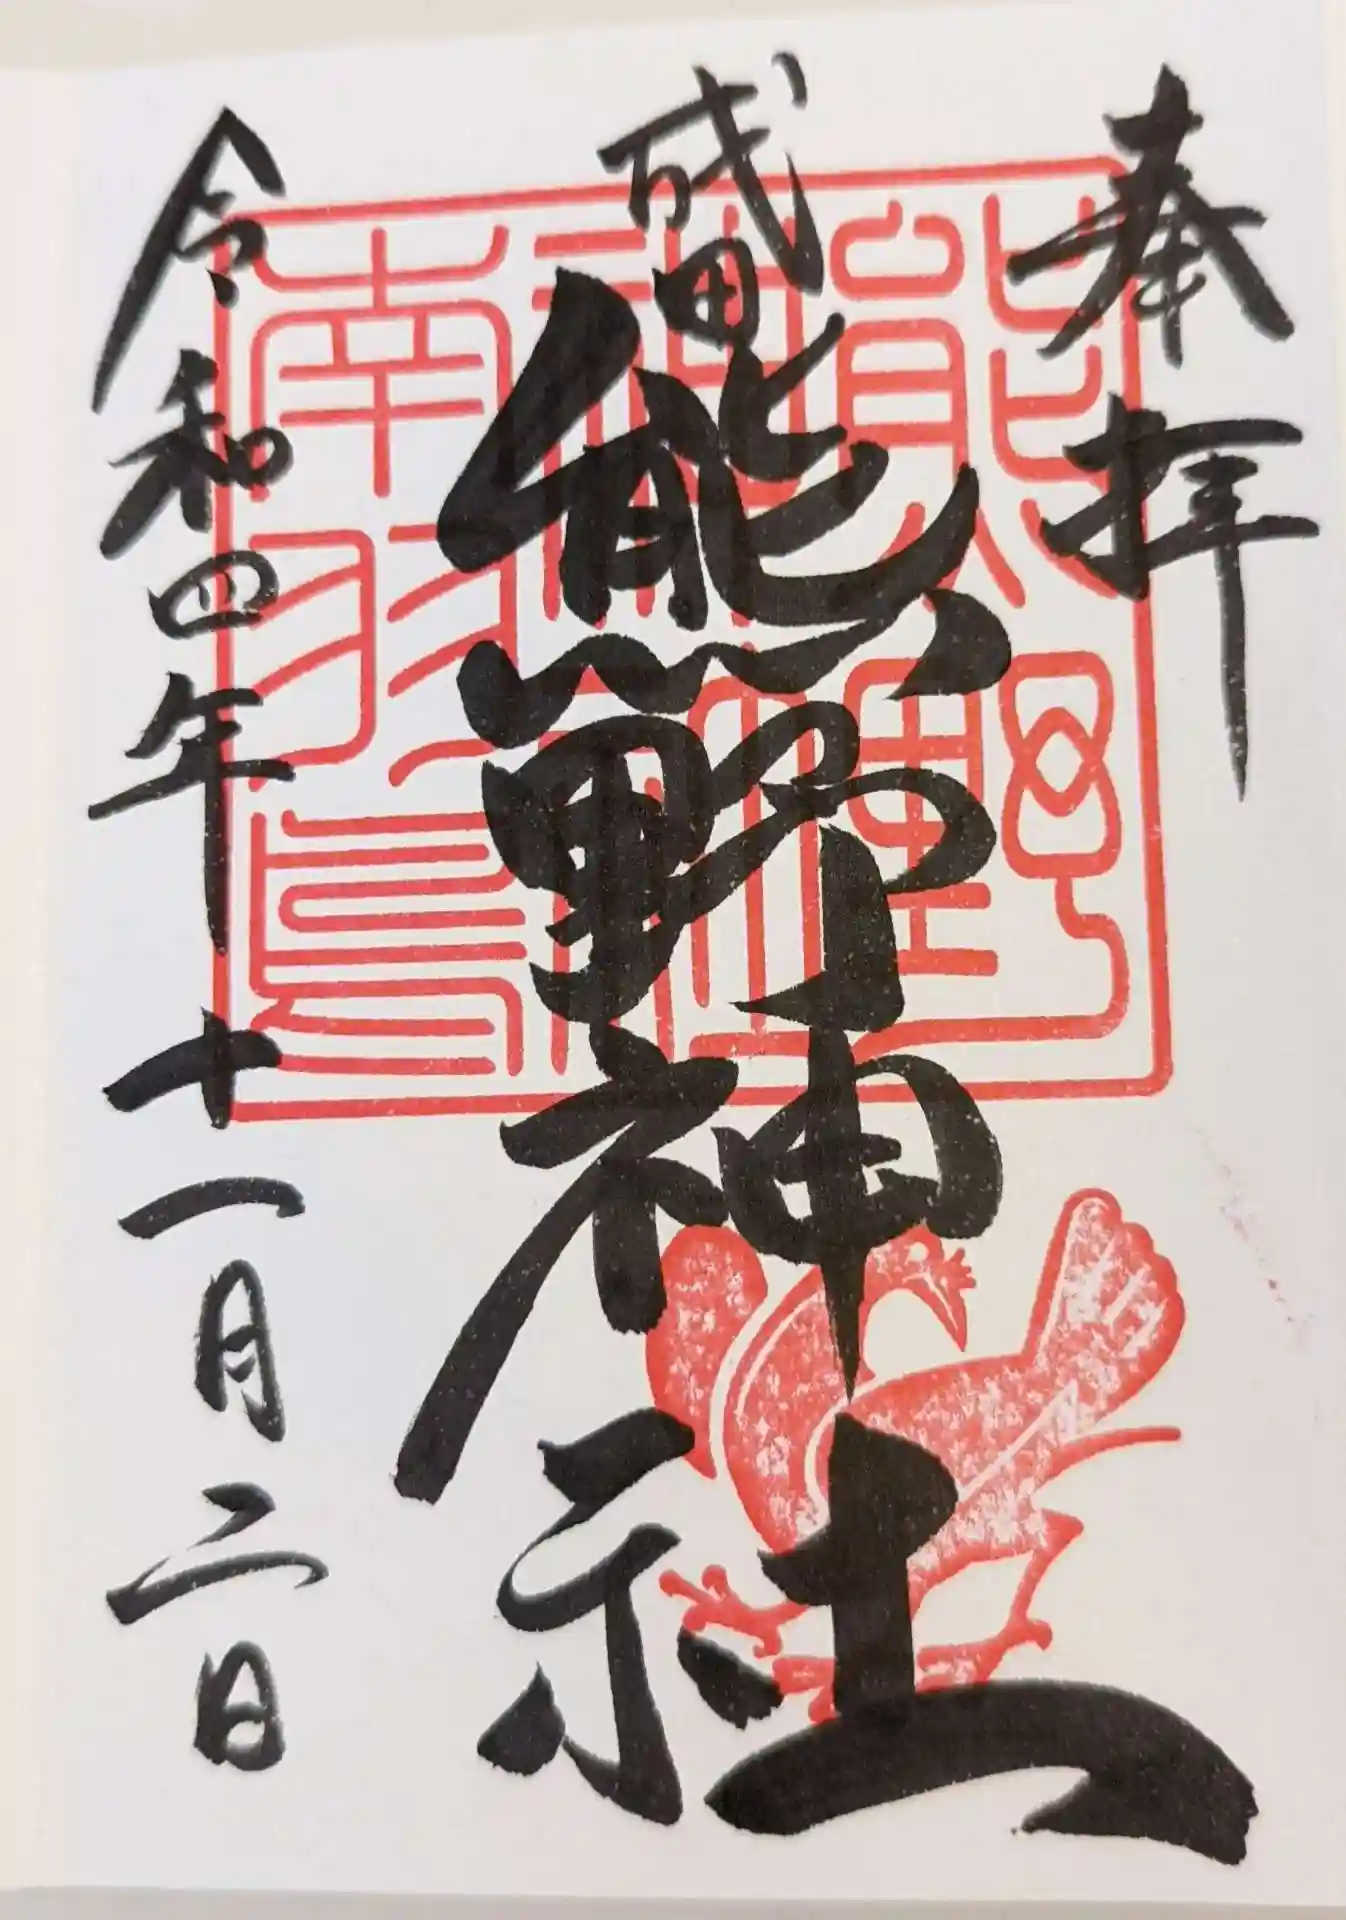 奉拝
成田
熊野神社
令和四年十一月二日
熊野
神社
南羽鳥